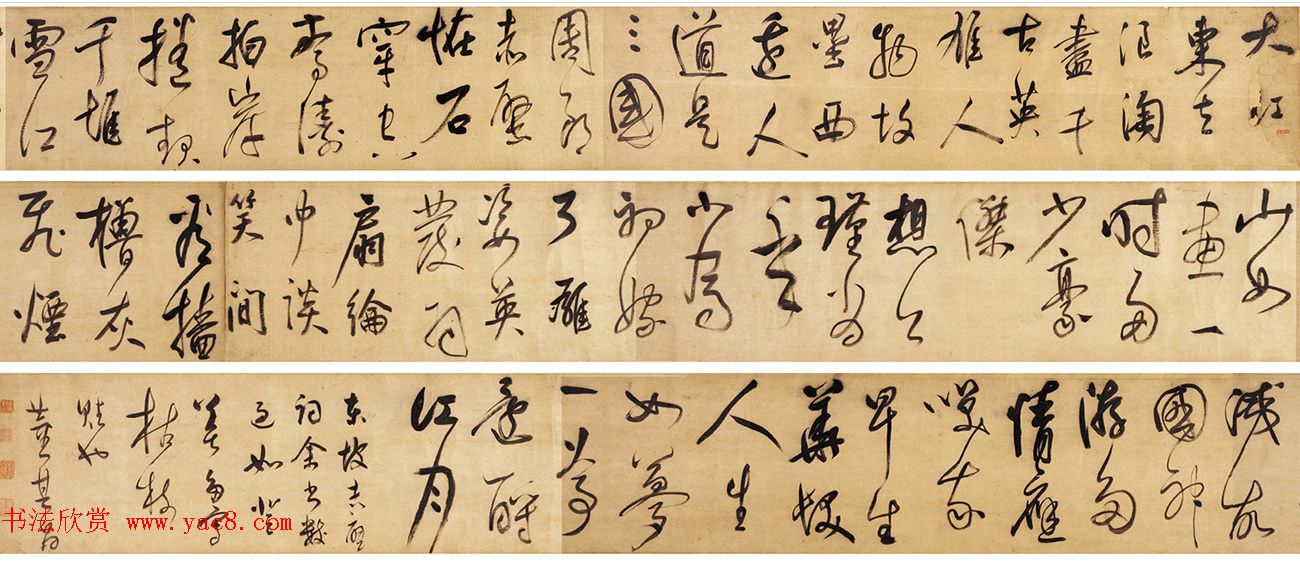 大江
東去
浪淘
盡千
古英
雄人
物故
壘西
邊人
道是
三國
周郎
赤壁
怪石
穿空
驚濤
拍岸
捲起
千堆
雪江
山如
畫一
時多
少豪
傑
想公
瑾當
年
小喬
初嫁
了雄
姿英
發羽
扇綸
巾談
笑間
看檣
櫓灰
飛煙
滅故
國神
游多
情應
笑我
早生
華髮
人生
如夢
一尊
還酹
江月
東坡赤壁
詞余書數
過如登
善多寫
枯樹
賦也
董其昌
书法欣赏 www.yac8.com